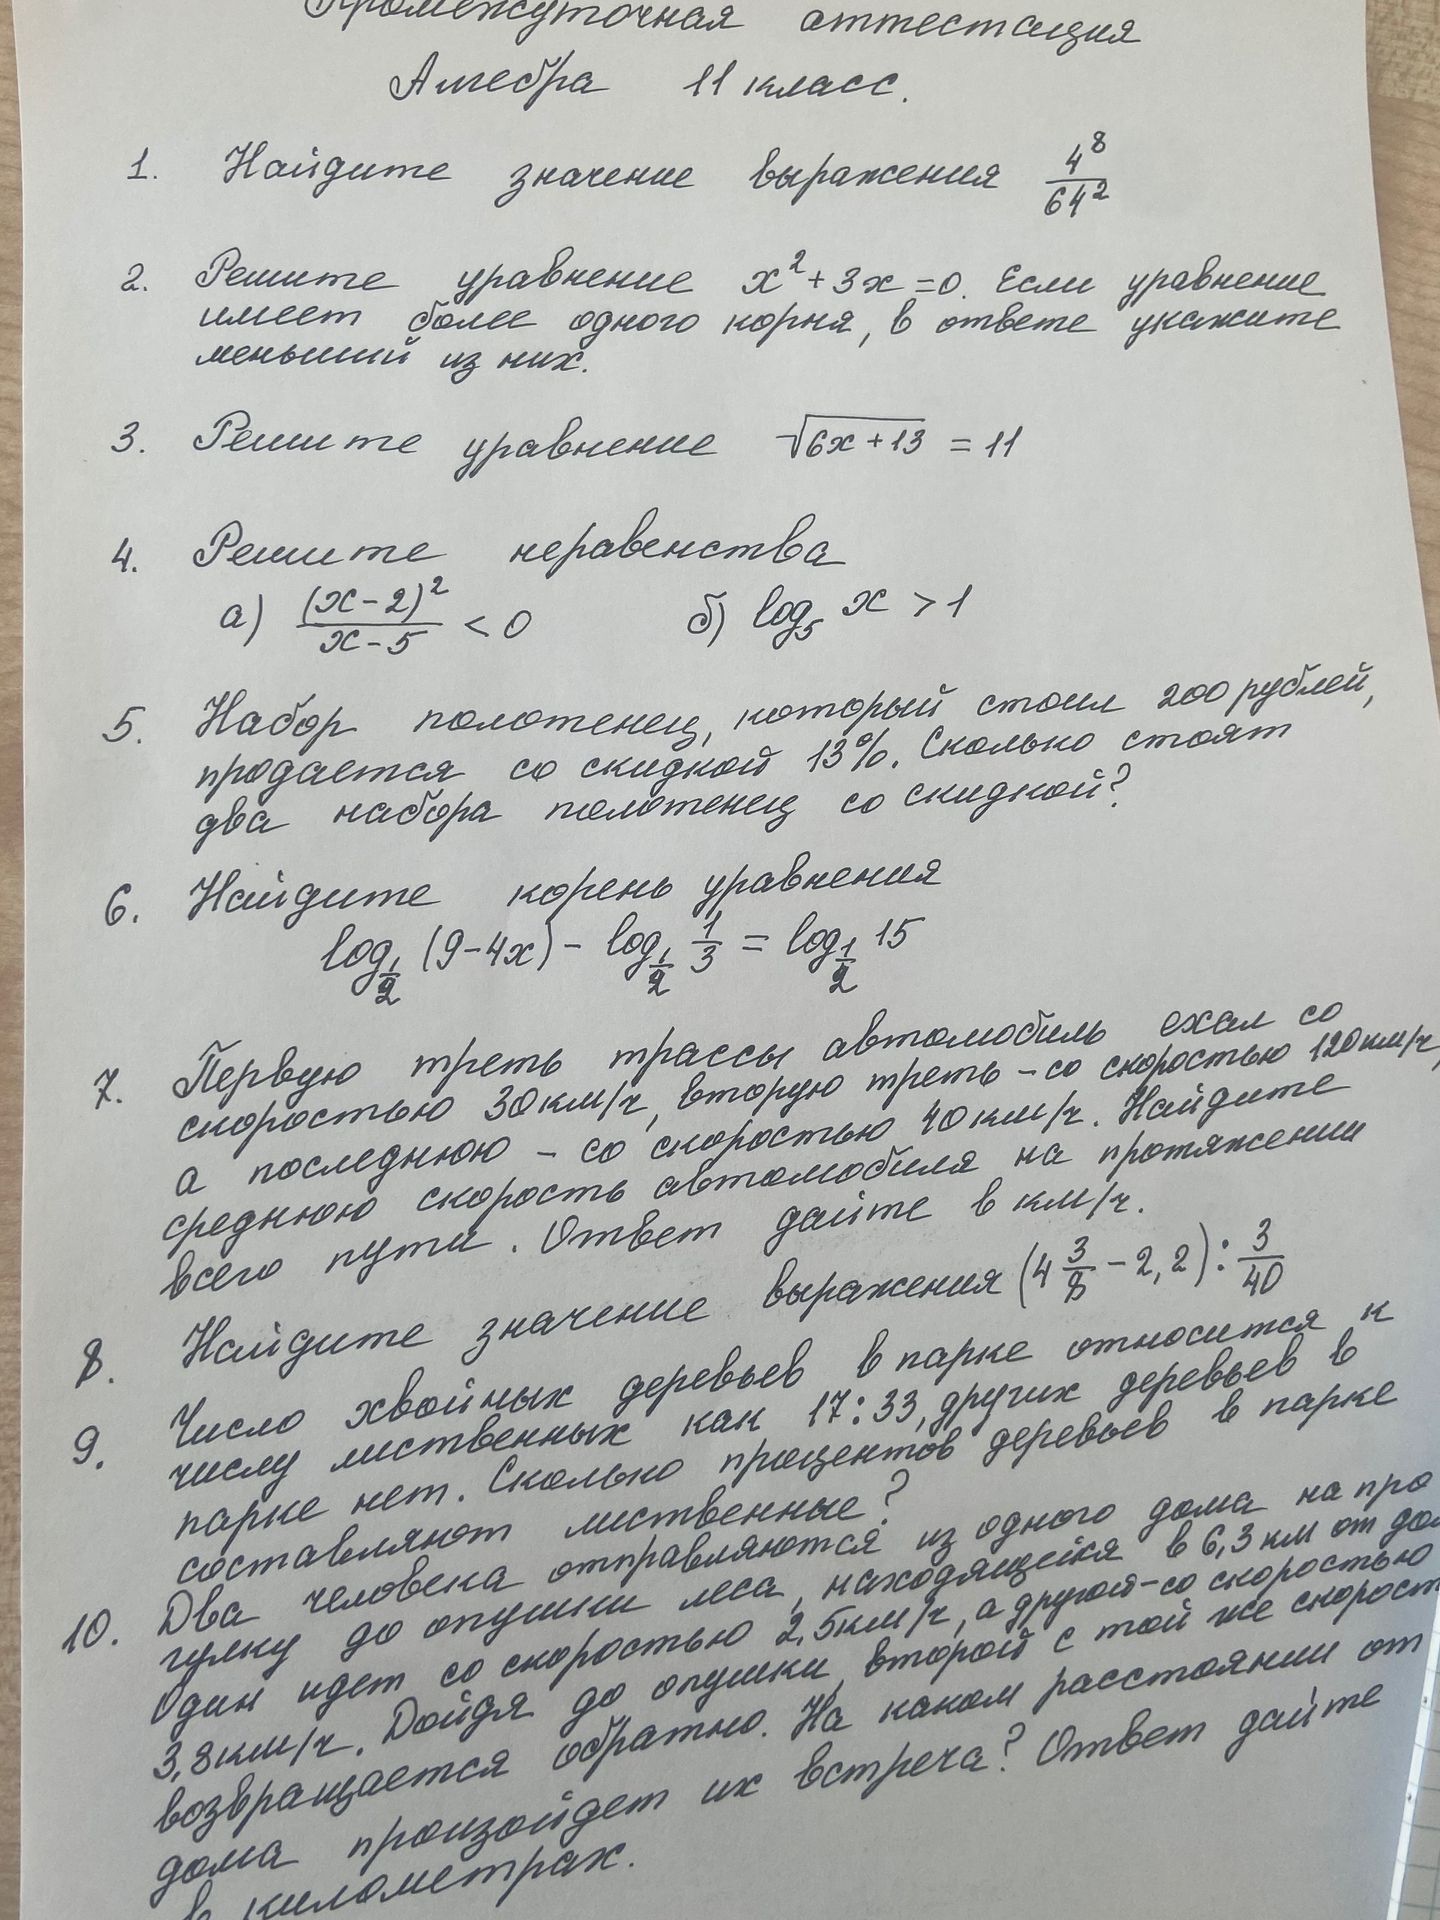 Промежуточная аттестация
Алгебра 11 класс.
1. Найдите значение выражения 4^8/64^2
2. Решите уравнение x^2+3x=0. Если уравнение
имеет более одного корня, в ответе укажите
меньший из них.
3. Решите уравнение √(6x+13) = 11
4. Решите неравенства
а) (x-2)^2/(x-5) < 0 б) log_5 x > 1
5. Набор полотенец, который стоил 200 рублей,
продается со скидкой 13%. Сколько стоят
два набора полотенец со скидкой?
6. Найдите корень уравнения
log_{1/2} (9-4x) - log_{1/2} 1/3 = log_{1/2} 15
7. Первую треть трассы автомобиль ехал со
скоростью 30 км/ч, вторую треть - со скоростью 120 км/ч,
а последнюю - со скоростью 40 км/ч. Найдите
среднюю скорость автомобиля на протяжении
всего пути. Ответ дайте в км/ч.
8. Найдите значение выражения (4 3/8 - 2,2) : 3/40
9. Число хвойных деревьев в парке относится к
числу лиственных как 17:33, других деревьев в
парке нет. Сколько процентов деревьев в парке
составляют лиственные?
10. Два человека отправляются из одного дома на про
гулку до опушки леса, находящейся в 6,3 км от дом
Один идет со скоростью 2,5 км/ч, а другой - со скоростью
3,8 км/ч. Дойдя до опушки, второй с той же скорост
возвращается обратно. На каком расстоянии от
дома произойдет их встреча? Ответ дайте
в километрах.